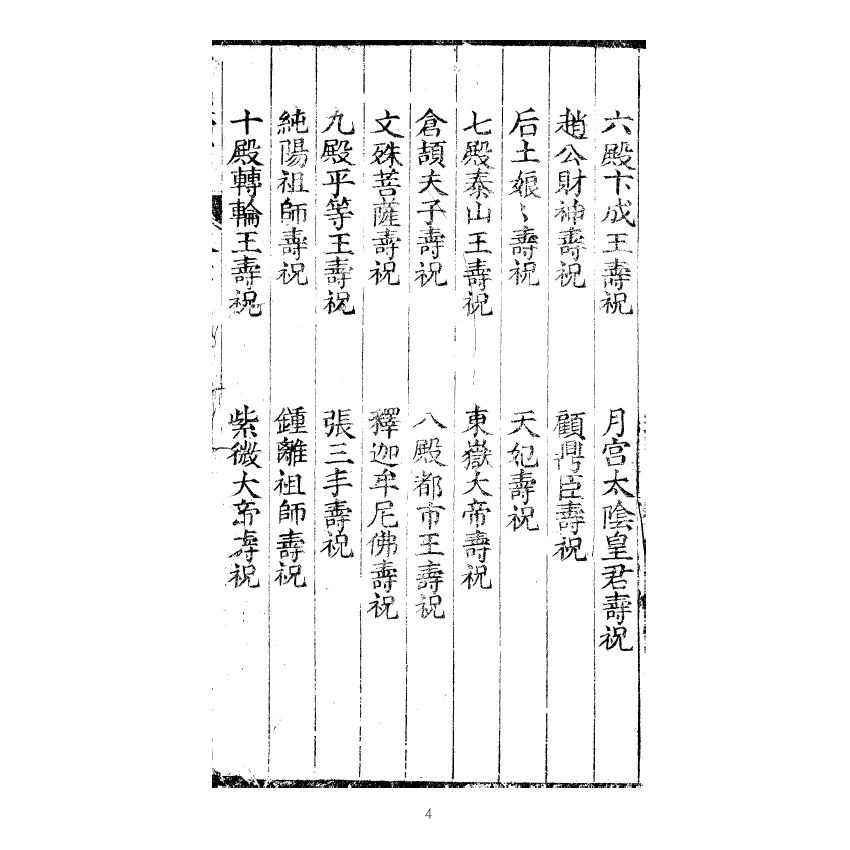 六殿卞成王壽祝　月宫太陰皇君壽祝
趙公財神壽祝　顧鼎臣壽祝
后土娘〻壽祝　天妃壽祝
七殿泰山王壽祝　東嶽大帝壽祝
倉頡夫子壽祝　八殿都市王壽祝
文殊菩薩壽祝　釋迦牟尼佛壽祝
九殿平等王壽祝　張三丰壽祝
純陽祖師壽祝　鍾離祖師壽祝
十殿轉輪王壽祝　紫微大帝壽祝
4